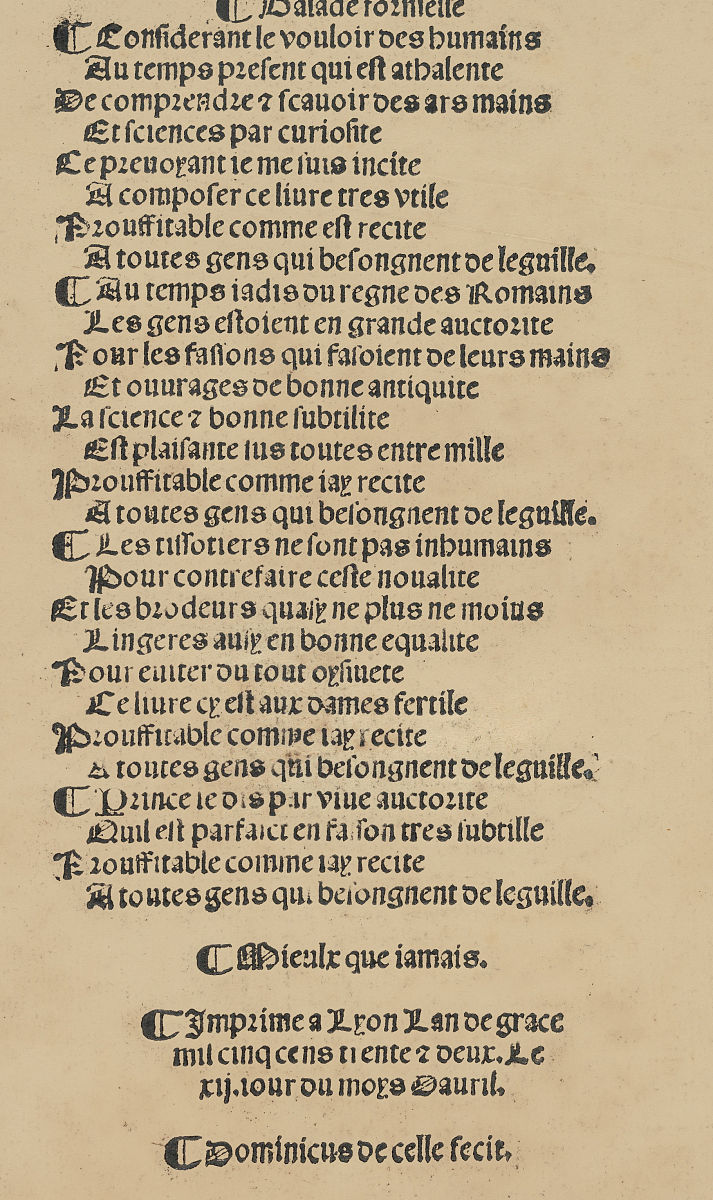 ¶ Balade formelle
¶ Considerant le vouloir des humains
Au temps present qui est athalente
De comprendre ⁊ scauoir des ars mains
Et sciences par curiosite
Ce preuoyant ie me suis incite
A composer ce liure tres vtile
Prouffitable comme est recite
A toutes gens qui besongnent de leguille.
¶ Au temps iadis du regne des Romains
Les gens estoient en grande auctorite
Pour les fasions qui fasoient de leurs mains
Et ouurages de bonne antiquite
La science ⁊ bonne subtilite
Est plaisante sus toutes entre mille
Prouffitable comme iay recite
A toutes gens qui besongnent de leguille.
¶ Les tissotiers ne sont pas inhumains
Pour contrefaire ceste noualite
Et les brodeurs quasy ne plus ne moins
Lingeres ausy en bonne equalite
Pour euiter du tout oysiuete
Ce liure cy est aux dames fertile
Prouffitable comme iay recite
A toutes gens qui besongnent de leguille.
¶ Prince ie dis par viue auctorite
Quil est parfaict en faison tres subtille
Prouffitable comme iay recite
A toutes gens qui besongnent de leguille.
¶ Mieulx que iamais.
¶ Imprime a Lyon Lan de grace
mil cinq cens trente ⁊ deux. Le
xij. iour du moys Dauril.
¶ Dominicus de celle fecit.